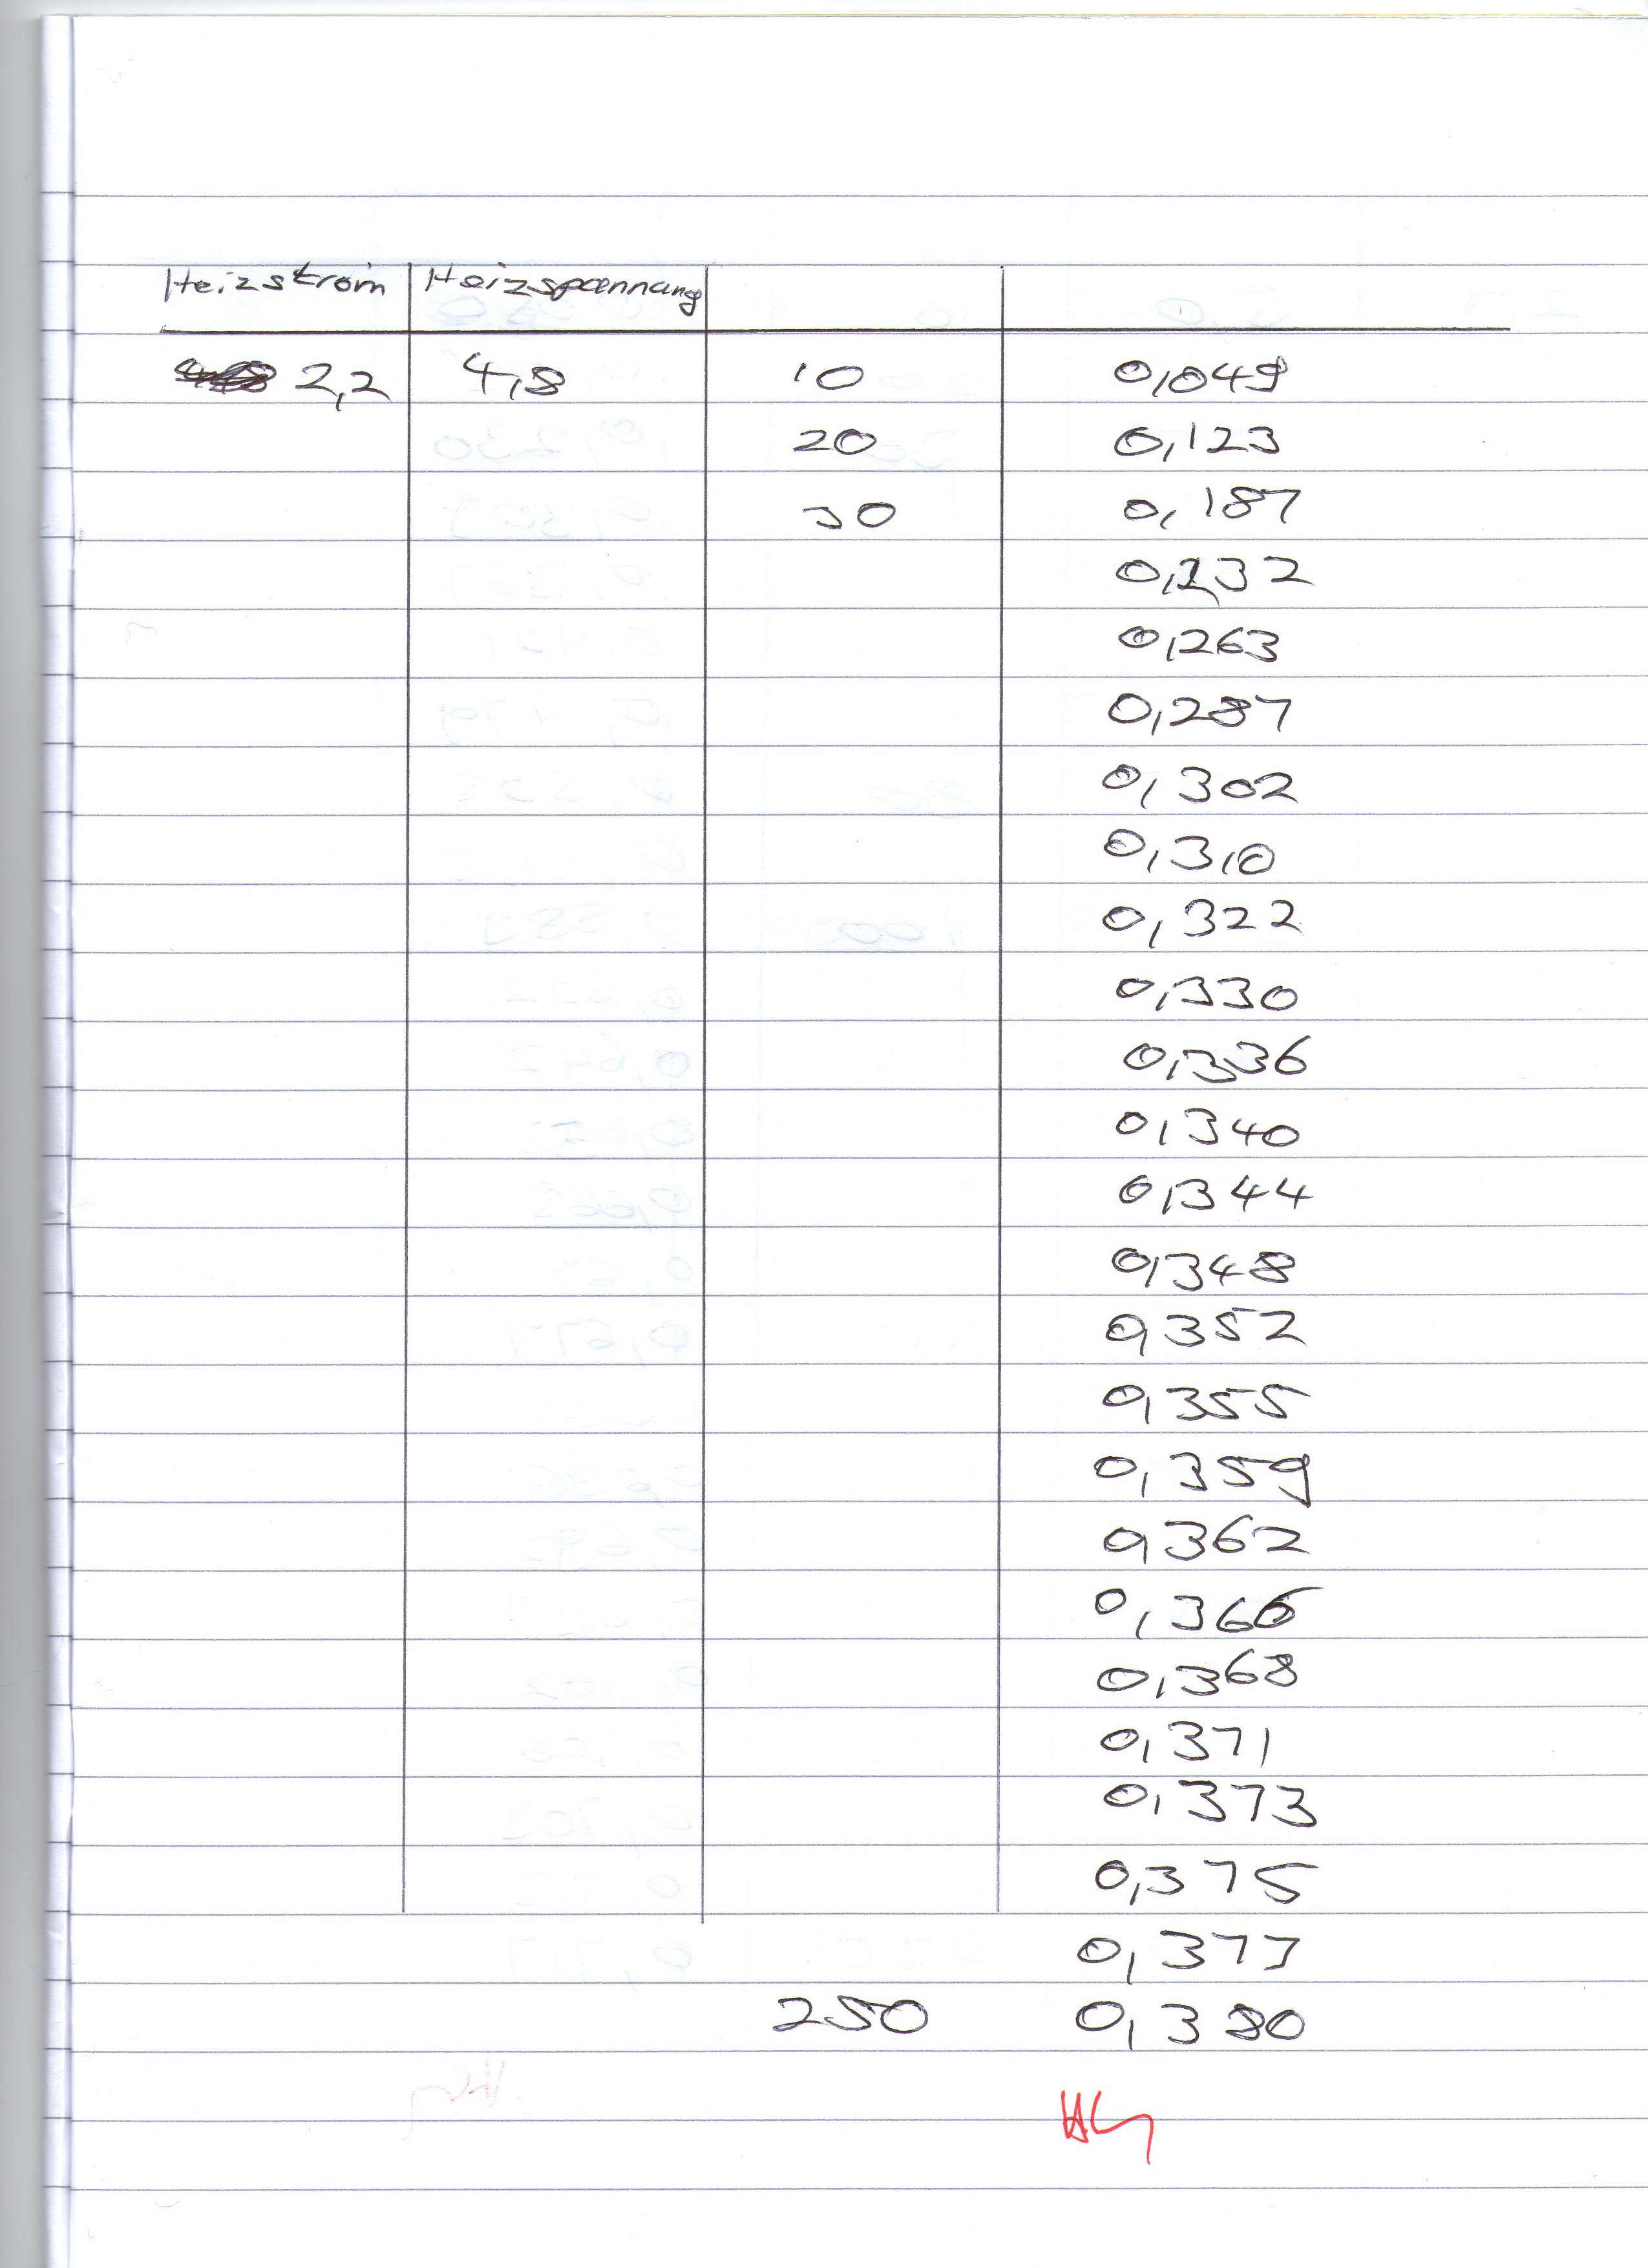 Heizstrom Heizspannung
2,2 4,8 10 0,049
20 0,123
30 0,187
0,232
0,263
0,287
0,302
0,310
0,322
0,330
0,336
0,340
0,344
0,348
0,352
0,355
0,359
0,362
0,366
0,368
0,371
0,373
0,375
0,377
250 0,380